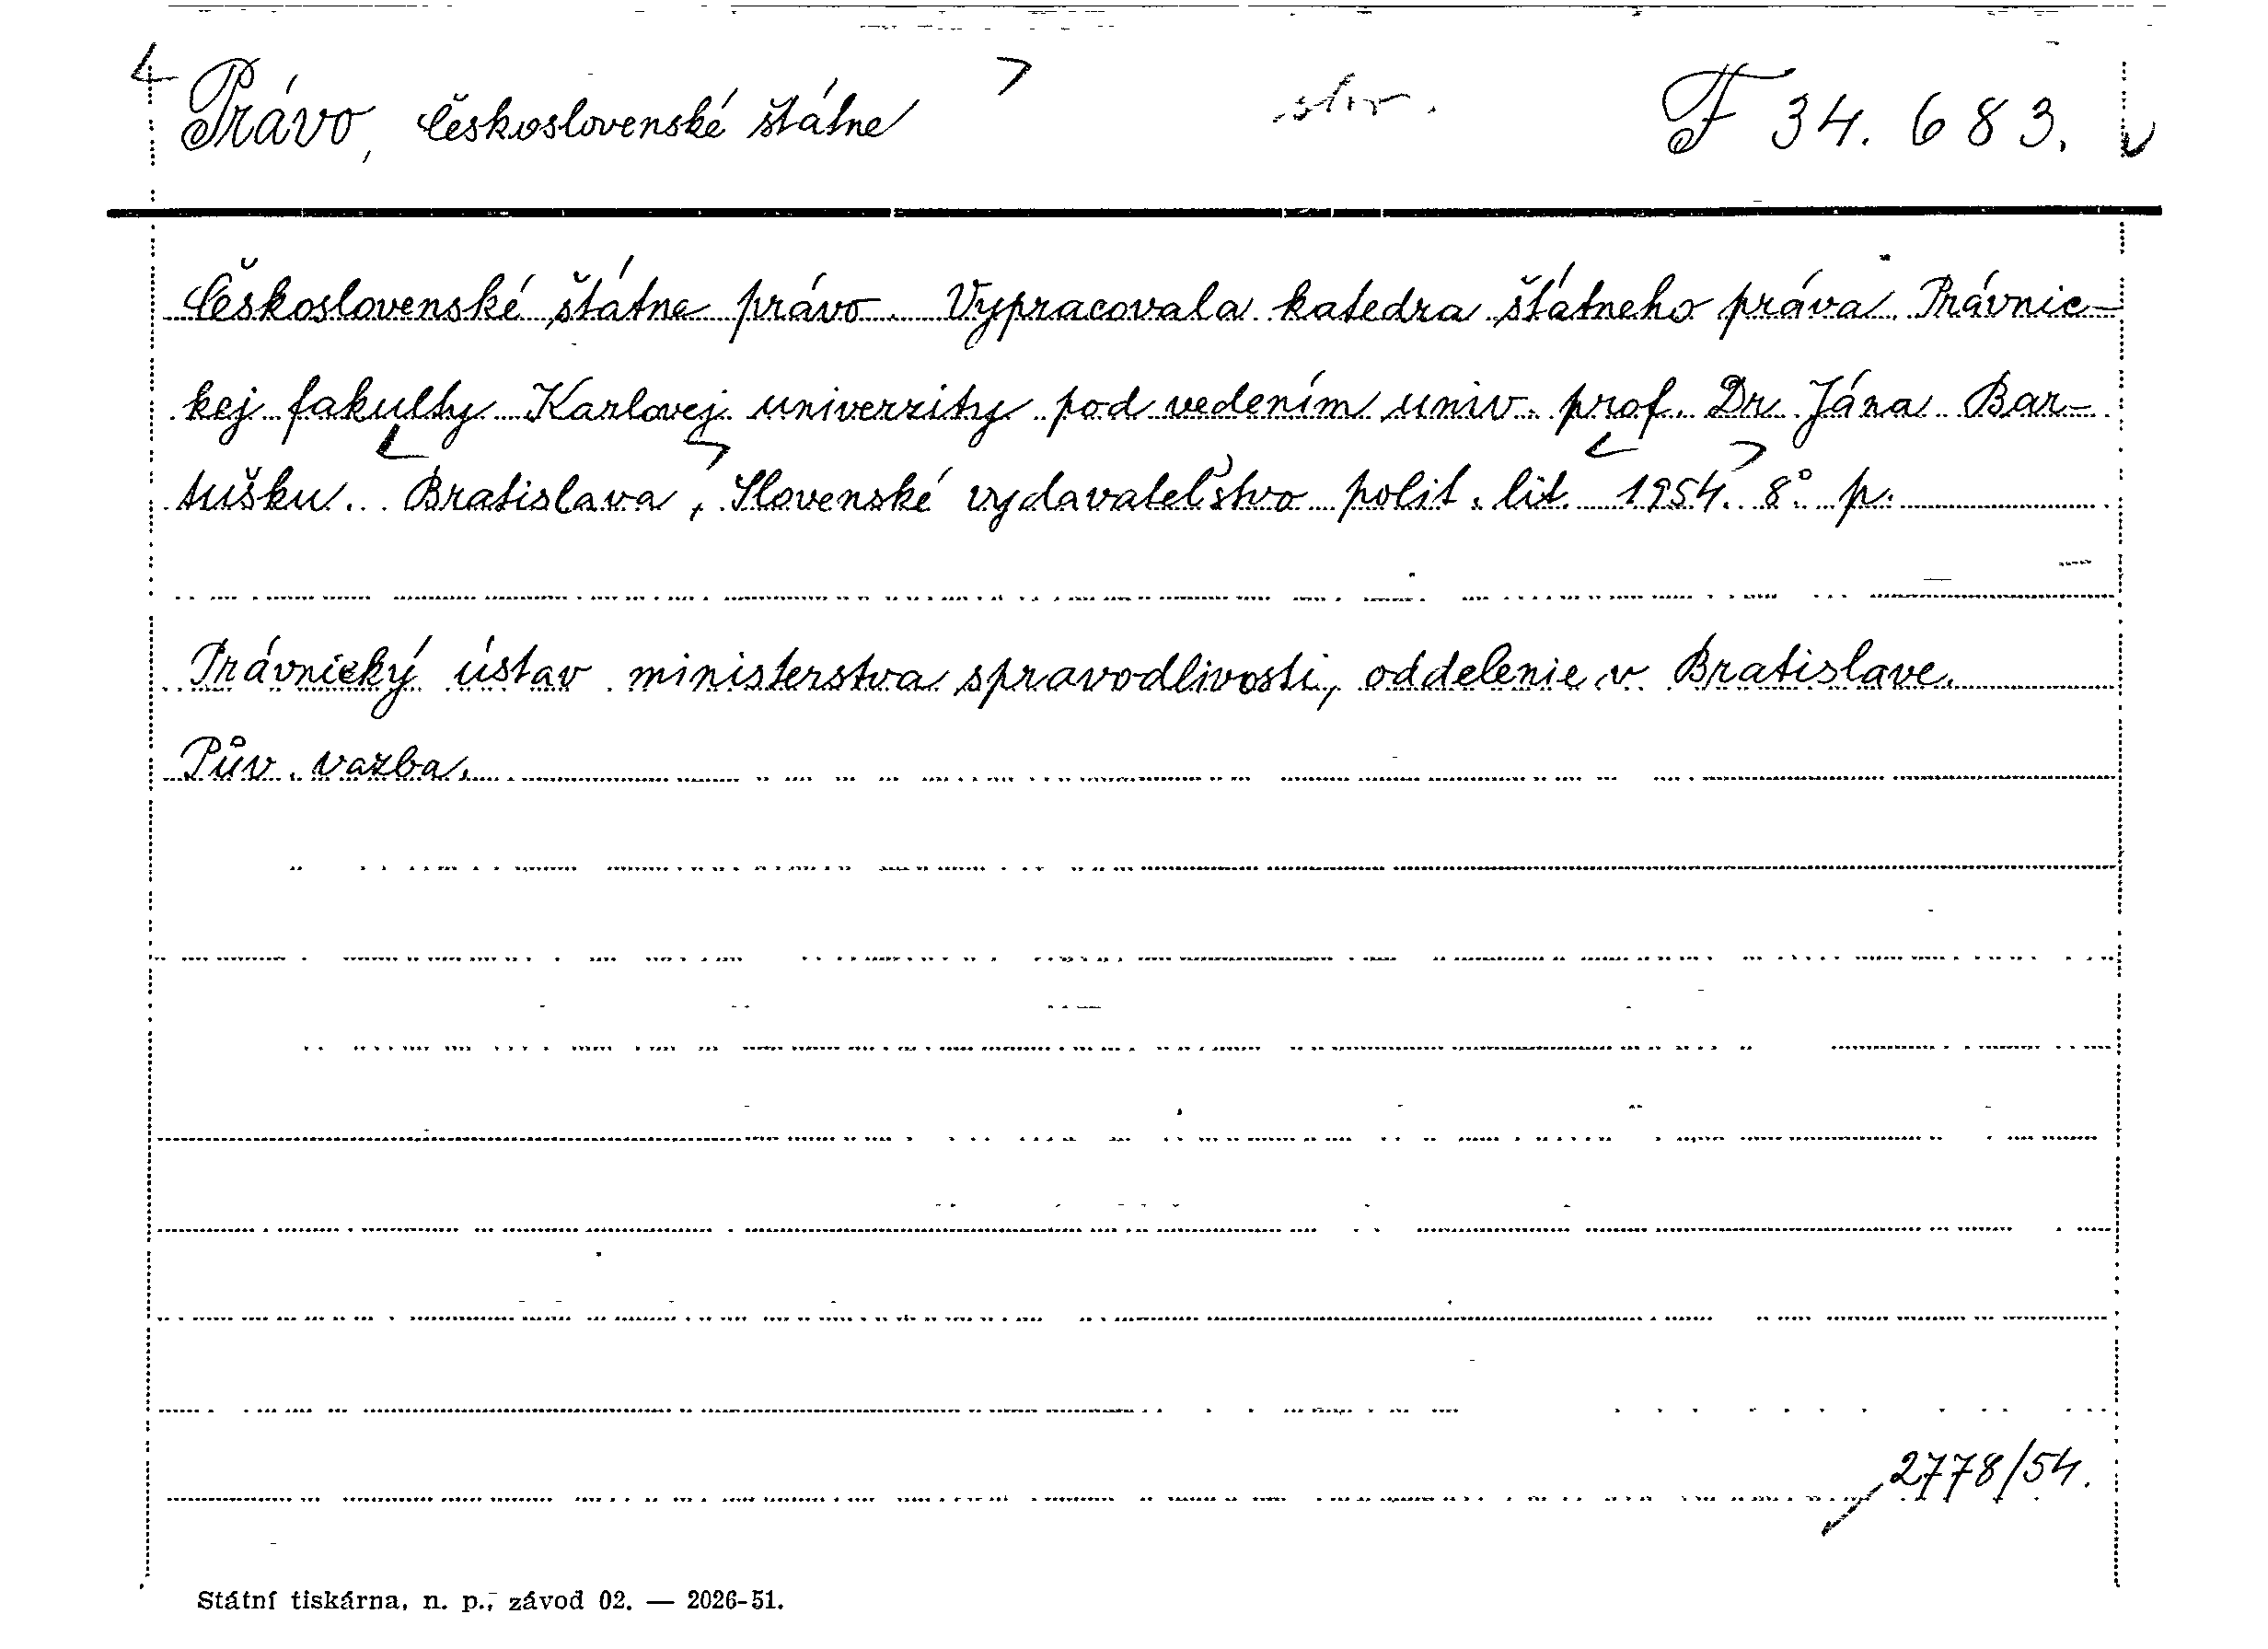 Právo, Československé štátne slov. F 34.683.
Československé štátne právo. Vypracovala katedra štátneho práva Právnic-
kej fakulty Karlovej univerzity pod vedením univ. prof. Dr. Jána Bar-
tušku. Bratislava, Slovenské vydavateľstvo polit. lit. 1954. 8° p.
Právnický ústav ministerstva spravodlivosti, oddelenie v Bratislave.
Pův. vazba.
2778/54.
Státní tiskárna, n. p., závod 02. — 2026-51.